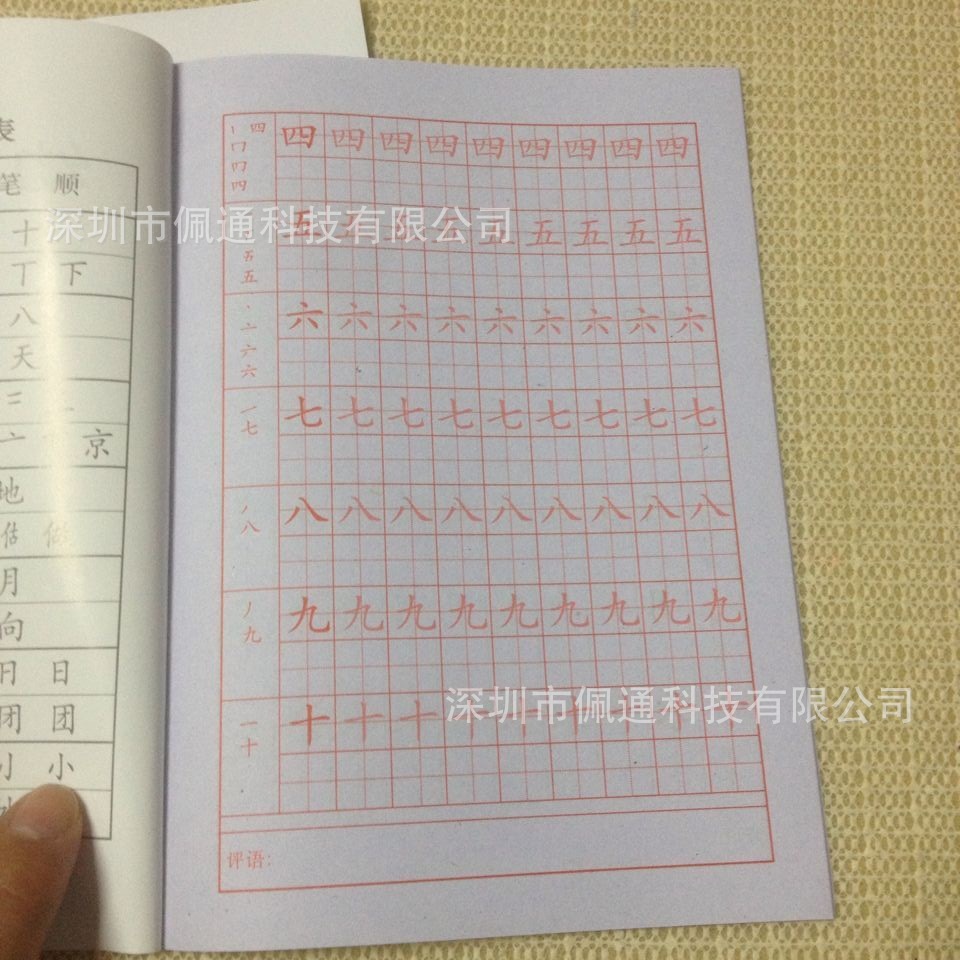 表
笔 顺
十
丅 下
八
天
二
亠 京
地
做
月
向
日 日
团 团
小
丨 四
冂
四
四
四 四 四 四 四 四 四 四 四
五 五 五 五 五 五
五
五
六 六 六 六 六 六 六 六 六
丶
亠
六
六
一 七 七 七 七 七 七 七 七 七
七
丿 八 八 八 八 八 八 八 八 八
八
丿 九 九 九 九 九 九 九 九 九
九
一 十 十 十 十 十 十 十 十 十
十
评语:
深圳市佩通科技有限公司
深圳市佩通科技有限公司